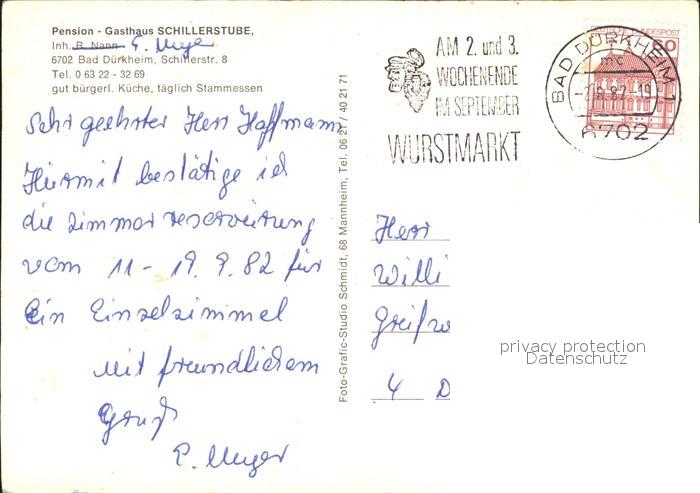 Pension - Gasthaus SCHILLERSTUBE,
Inh. R. Nann E. Meyer
6702 Bad Dürkheim, Schillerstr. 8
Tel. 0 63 22 - 32 69
gut bürgerl. Küche, täglich Stammessen
Sehr geehrter Herr Hoffmann
Hiermit bestätige ich
die Zimmerreservierung
vom 11 - 19. 9. 82 für
Ein Einzelzimmer
Mit freundlichem
Gruß
E. Meyer
Foto-Grafic-Studio Schmidt, 68 Mannheim, Tel. 06 21 / 40 21 71
AM 2. und 3.
WOCHENENDE
IM SEPTEMBER
WURSTMARKT
BAD DÜRKHEIM 1
mc
6702
BUNDESPOST
60
Herr
Willi
4 D
privacy protection
Datenschutz